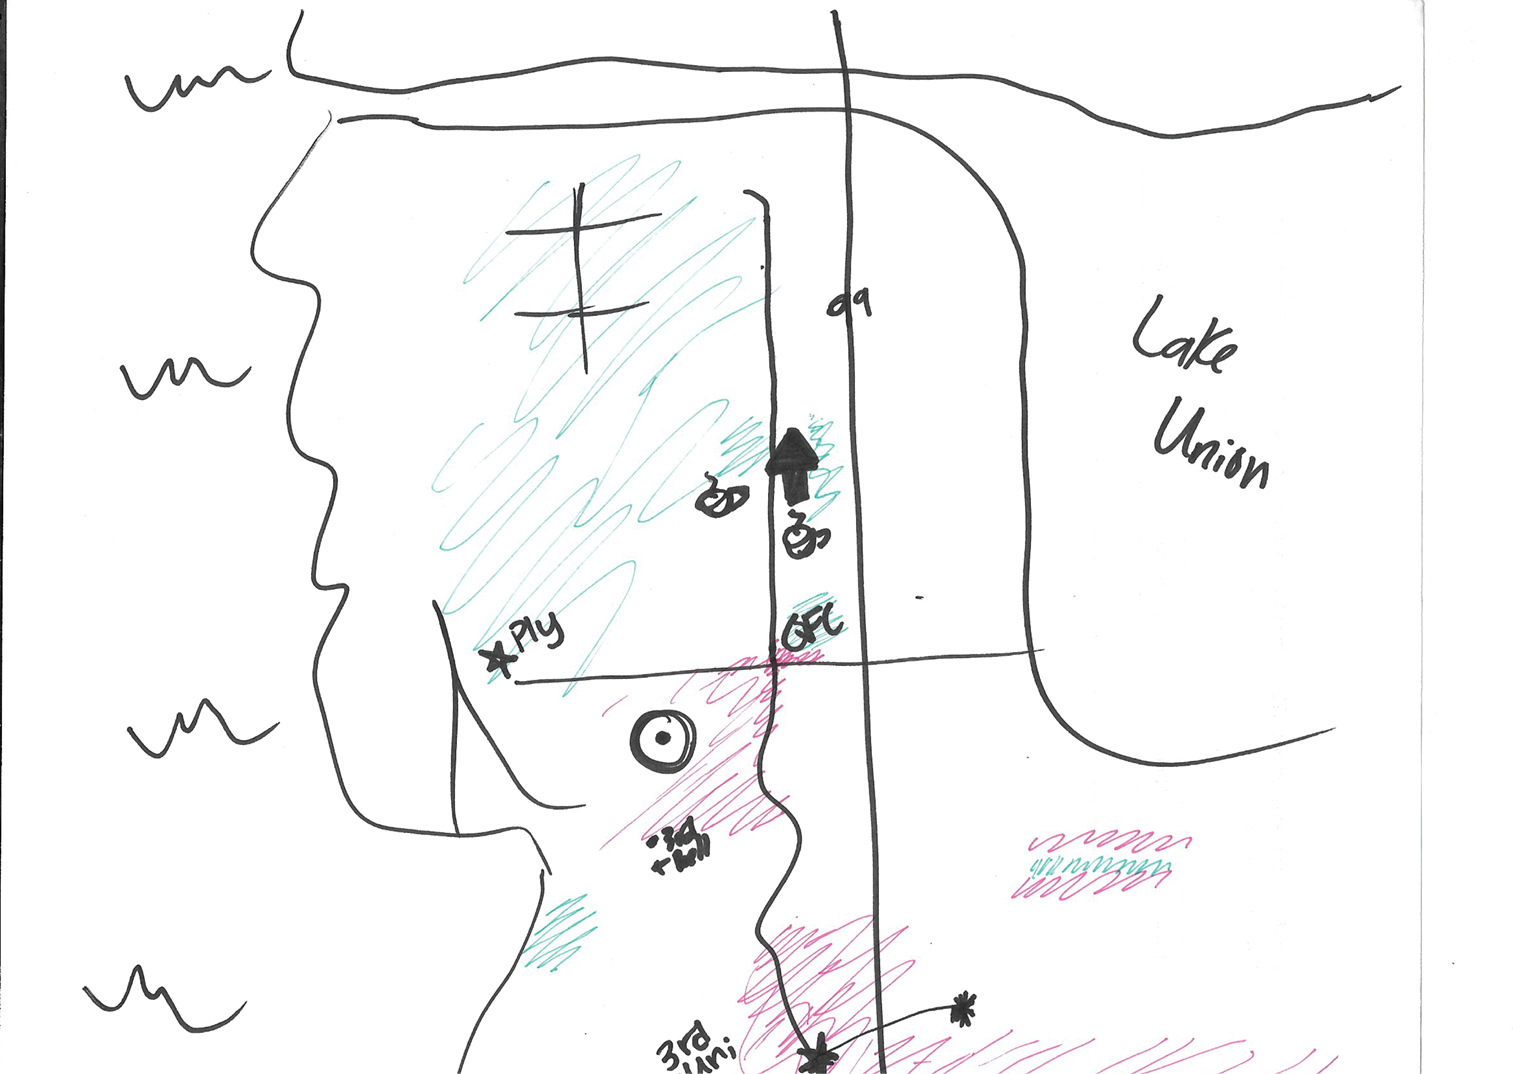 99
Lake
Union
Ply
GFC
3rd
+ bell
3rd
Uni